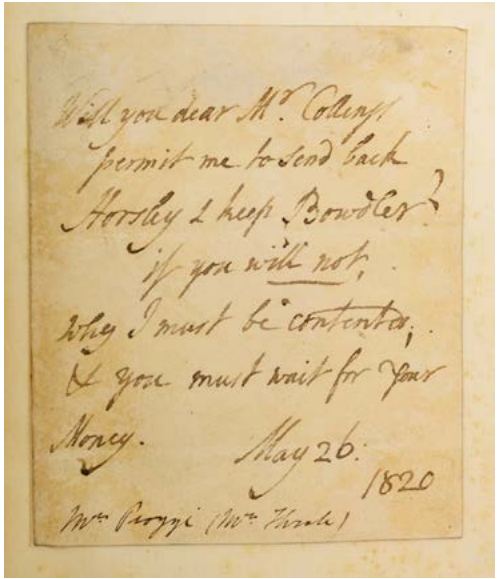 Will you dear Mr. Collings
permit me to send back
Horsley & keep Bowdler?
if you will not,
why I must be contented;
& you must wait for your
Money.
May 26:
1820
Mrs Piozzi (Mrs Thrale)